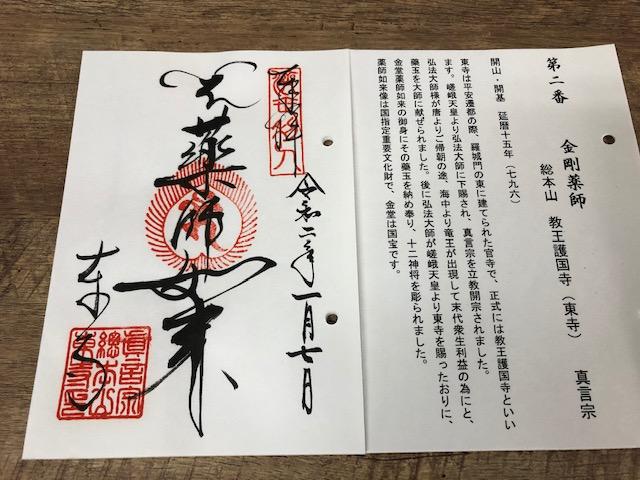 第二番 金剛薬師
総本山 教王護国寺(東寺) 真言宗
開山・開基 延暦十五年(七九六)
東寺は平安遷都の際、羅城門の東に建てられた官寺で、正式には教王護国寺といい
ます。嵯峨天皇より弘法大師に下賜され、真言宗を立教開宗されました。
弘法大師様が唐よりご帰朝の途、海中より竜王が出現して末代衆生利益の為にと、
藥玉を大師に献ぜられました。後に弘法大師が嵯峨天皇より東寺を賜ったおりに、
金堂薬師如来の御身にその藥玉を納め奉り、十二神将を彫られました。
薬師如来像は国指定重要文化財で、金堂は国宝です。
奉拝
令和二年一月七日
薬師如来
東寺
眞言宗
總本山
東寺